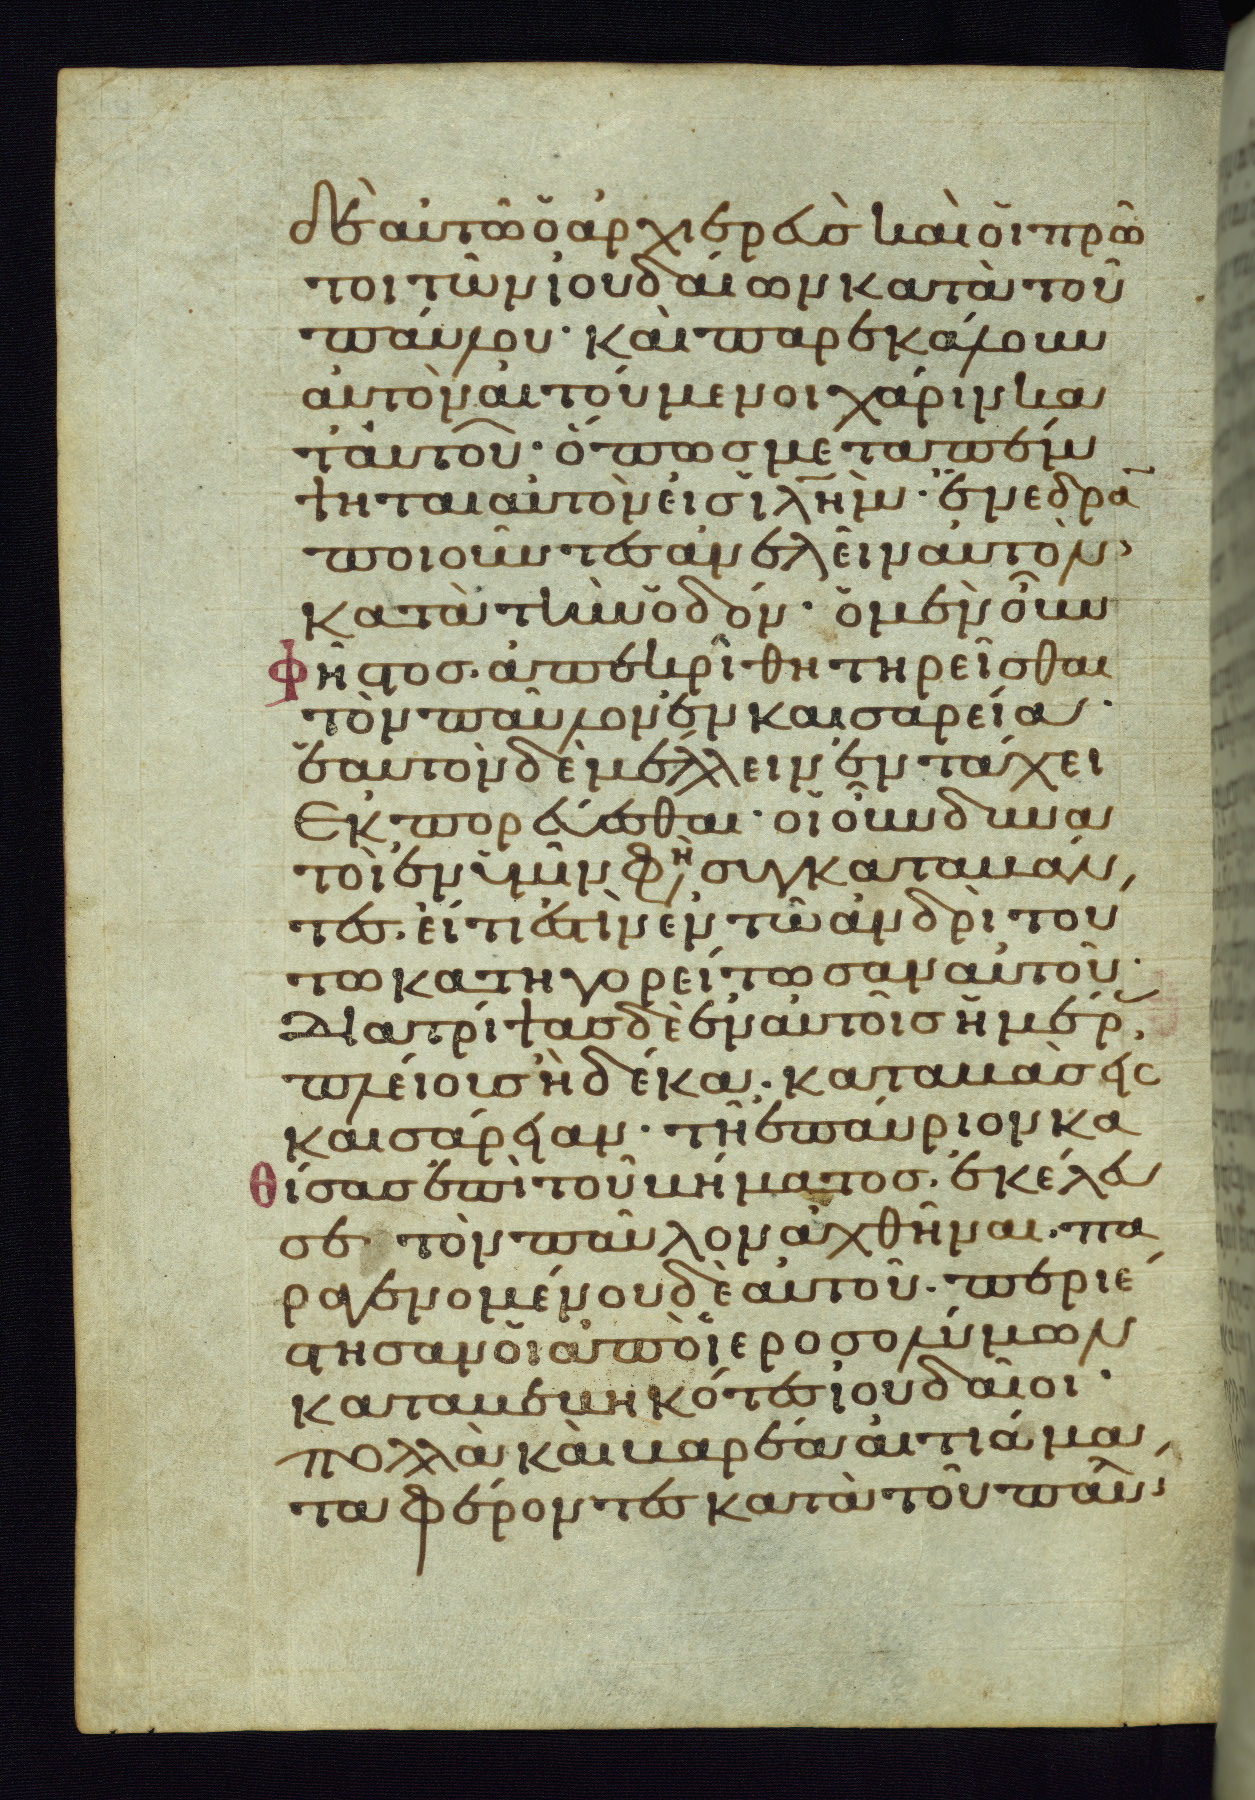 δὲ αὐτῶ ὁ ἀρχιερεὺς καὶ οἱ πρῶ
τοι τῶν ἰουδαίων κατὰ τοῦ
παύλου· καὶ παρεκάλουν
αὐτὸν αἰτούμενοι χάριν κα
τ' αὐτοῦ· ὅπως μεταπέμ
ψηται αὐτὸν εἰς ἱλῆμ· ἐνεδρα
ποιοῦντες ἀνελεῖν αὐτὸν
κατὰ τὴν ὁδόν· ὁ μὲν οὖν
φῆστος· ἀπεκρίθη τηρεῖσθαι
τὸν παῦλον ἐν καισαρεία·
ἑαυτὸν δὲ μέλλειν ἐν τάχει
ἐκπορεύεσθαι· οἱ οὖν δυνα
τοὶ ἐν ὑμῖν φη συγκαταβάν
τες· εἴ τι ἐστὶν ἐν τῶ ἀνδρὶ του
τω κατηγορείτωσαν αὐτοῦ·
Διατρίψας δὲ ἐν αὐτοῖς ἡμέρ
πλείους ἢ δέκα· καταβὰς εἰς
καισάρειαν· τῆ ἐπαύριον κα
θίσας ἐπὶ τοῦ βήματος· ἐκέλευ
σε τὸν παῦλον ἀχθῆναι· πα
ραγενομένου δὲ αὐτοῦ· περιέ
στησαν οἱ ἀπὸ ἱεροσολύμων
καταβεβηκότες ἰουδαῖοι·
πολλὰ καὶ βαρέα αἰτιάμα
τα φέροντες κατὰ τοῦ παῦλ